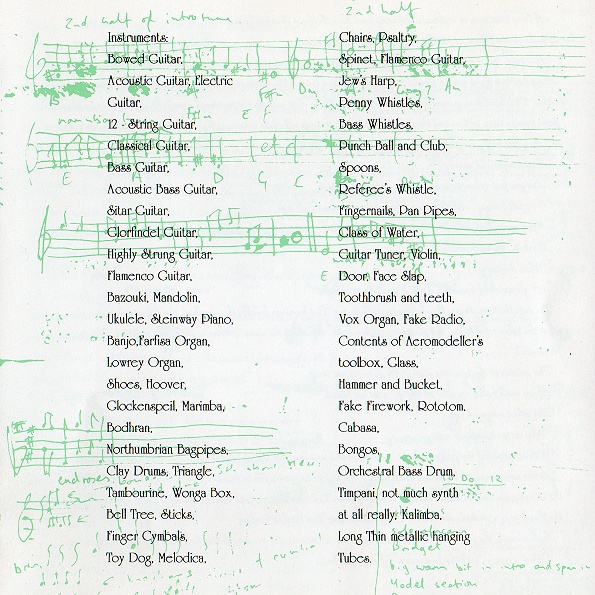 2nd half of intro tune
2nd half
Instruments:
Bowed Guitar,
Acoustic Guitar, Electric
Guitar,
12 - String Guitar,
Classical Guitar,
Bass Guitar,
Acoustic Bass Guitar,
Sitar Guitar,
Glorfindel Guitar,
Highly Strung Guitar,
Flamenco Guitar,
Bazouki, Mandolin,
Ukulele, Steinway Piano,
Banjo,Farfisa Organ,
Lowrey Organ,
Shoes, Hoover,
Glockenspeil, Marimba,
Bodhran,
Northumbrian Bagpipes,
Clay Drums, Triangle,
Tambourine, Wonga Box,
Bell Tree, Sticks,
Finger Cymbals,
Toy Dog, Melodica,
Chairs, Psaltry,
Spinet, Flamenco Guitar,
Jew's Harp,
Penny Whistles,
Bass Whistles,
Punch Ball and Club,
Spoons,
Referee's Whistle,
Fingernails, Pan Pipes,
Glass of Water,
Guitar Tuner, Violin,
Door, Face Slap,
Toothbrush and teeth,
Vox Organ, Fake Radio,
Contents of Aeromodeller's
toolbox, Glass,
Hammer and Bucket,
Fake Firework, Rototom,
Cabasa,
Bongos,
Orchestral Bass Drum,
Timpani, not much synth
at all really, Kalimba,
Long Thin metallic hanging
Tubes.
etc
E A D G C
Bridget
big warm bit in intro and
section